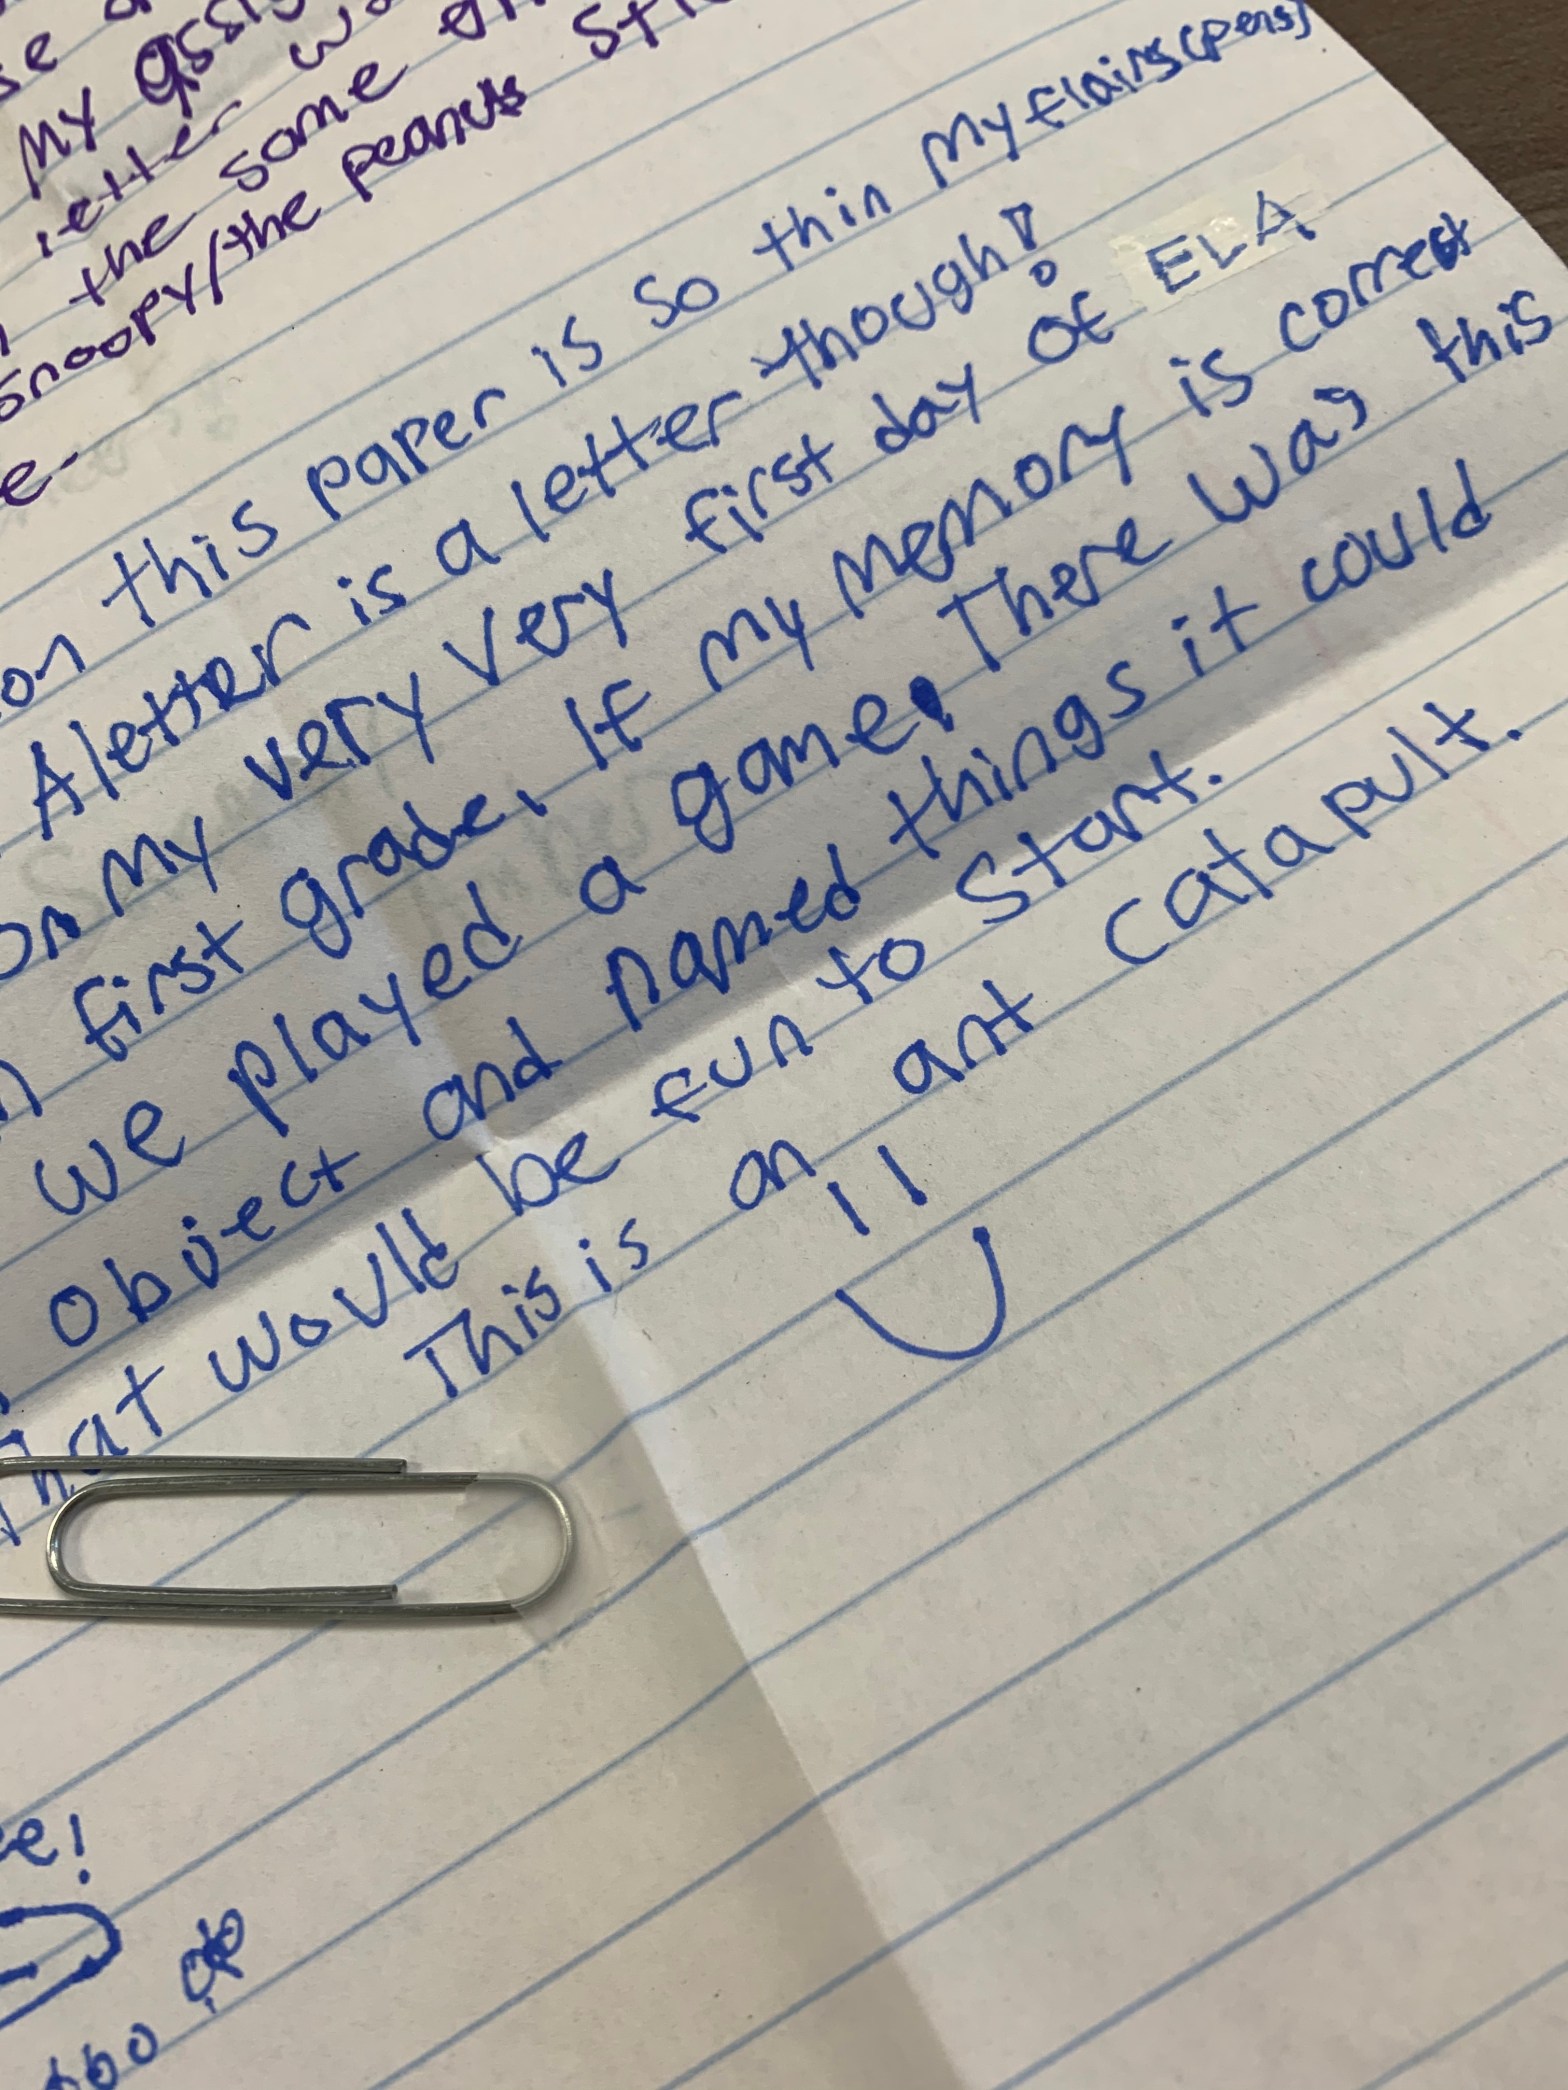 My
the same
Snoopy/the peanuts
e.
on this paper is so thin My flairs(pens)
A letter is a letter though!
on My very very first day of ELA
first grade. If my memory is correct
we played a game. There was this
object and named things it could
that would be fun to start.
This is an ant catapult.
ee!